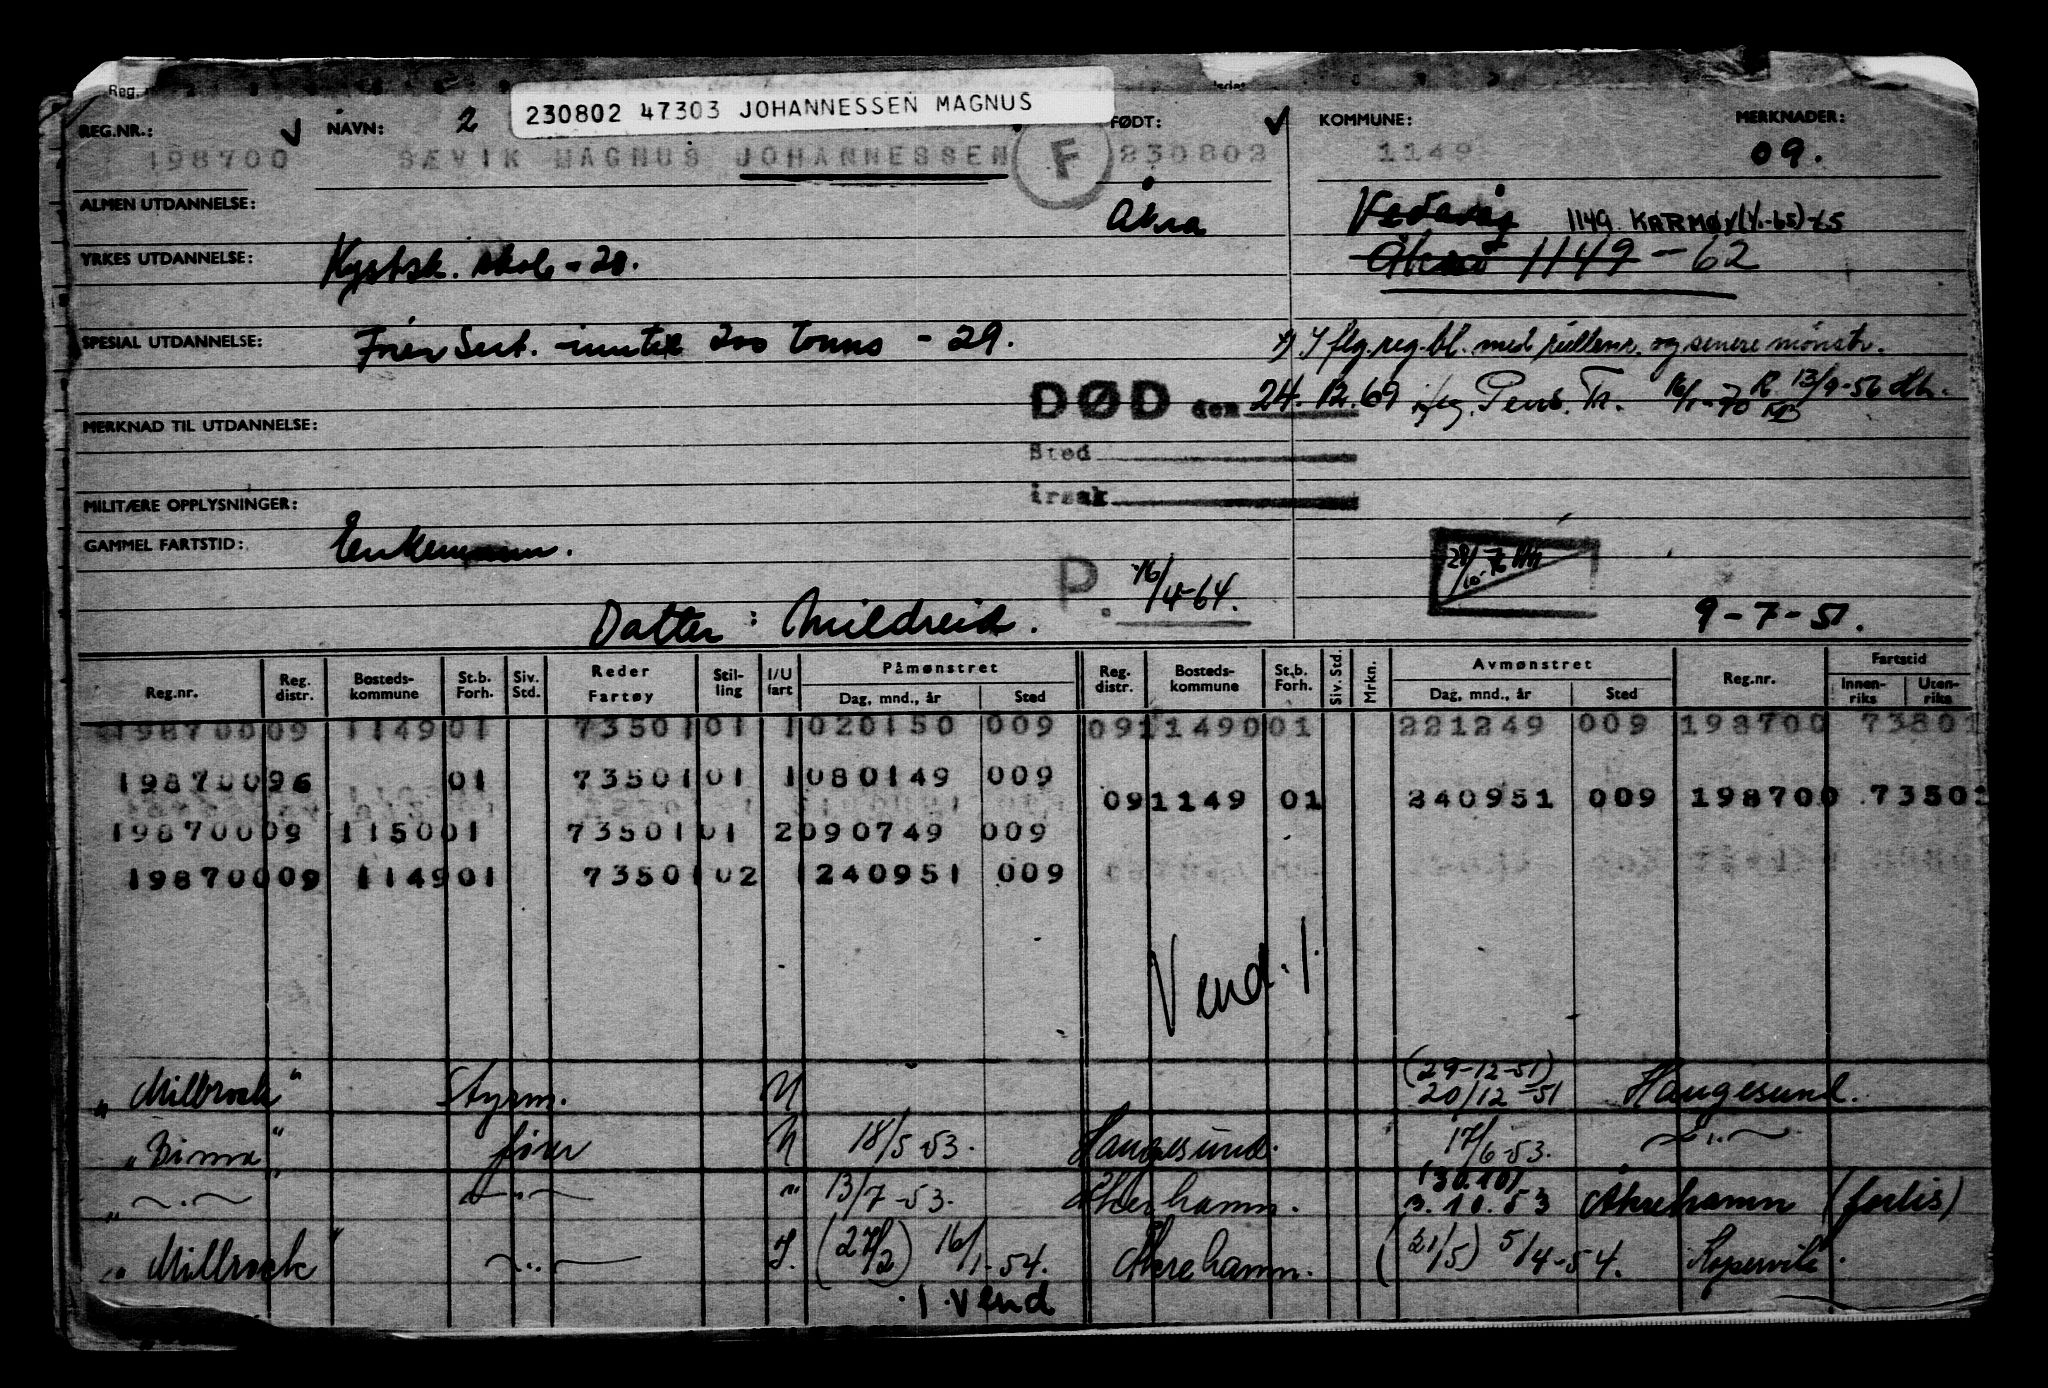 230802 47303 JOHANNESSEN MAGNUS
REG.NR.: NAVN: 2 FØDT: KOMMUNE: MERKNADER:
198700 SÆVIK MAGNUS JOHANNESSEN F 230802 1149 09.
ALMEN UTDANNELSE: Åkra Vedavåg 1149 KARMØY (1/1-65)-65
YRKES UTDANNELSE: Kystsk. skole - 20. Åkra 1149 - 62
SPESIAL UTDANNELSE: Fører Sert. inntil 200 tonns - 29. x) I flg. reg.bl. med rullenr. og senere mønstr.
DØD den 24.12.69 iflg. Pens. Tr. 16/1-70 13/9-56
MERKNAD TIL UTDANNELSE:
Sted
årsak
MILITÆRE OPPLYSNINGER:
GAMMEL FARTSTID: Enkemann.
P. 16/4-64. 28/10-76
Datter: Mildreid. 9-7-51.
Reg.nr. Reg. distr. Bosteds-kommune St.b. Forh. Siv. Std. Reder Fartøy Stil-ling I/U fart Påmønstret Dag, mnd., år Sted Reg. distr. Bosteds-kommune St.b. Forh. Siv. Std. Mrkn. Avmønstret Dag, mnd., år Sted Reg.nr. Fartstid Innen-riks Uten-riks
198700 09 1149 01 7350 1 01 1 020150 009 09 1149 0 01 221249 009 198700 73801
198700 96 01 7350 1 01 1 080149 009
09 1149 01 240951 009 198700 73501
198700 09 1150 01 7350 1 01 2 090749 009
198700 09 1149 01 7350 1 02 1 240951 009
Vend ./.
"Milbrock" Styrm. U (29-12-51) 20/12-51 Haugesund.
"Bimma" fører U 18/5-53. Haugesund. 17/6-53. -"-
" -"- -"- " 13/7-53. Åkrehamn. (30.10) 3.10.53 Åkrehamn (forlis)
"Milbrock" -"- I. (27/2) 16/1-54. Åkrehamn. (21/5) 5/4-54. Kopervik.
./. Vend